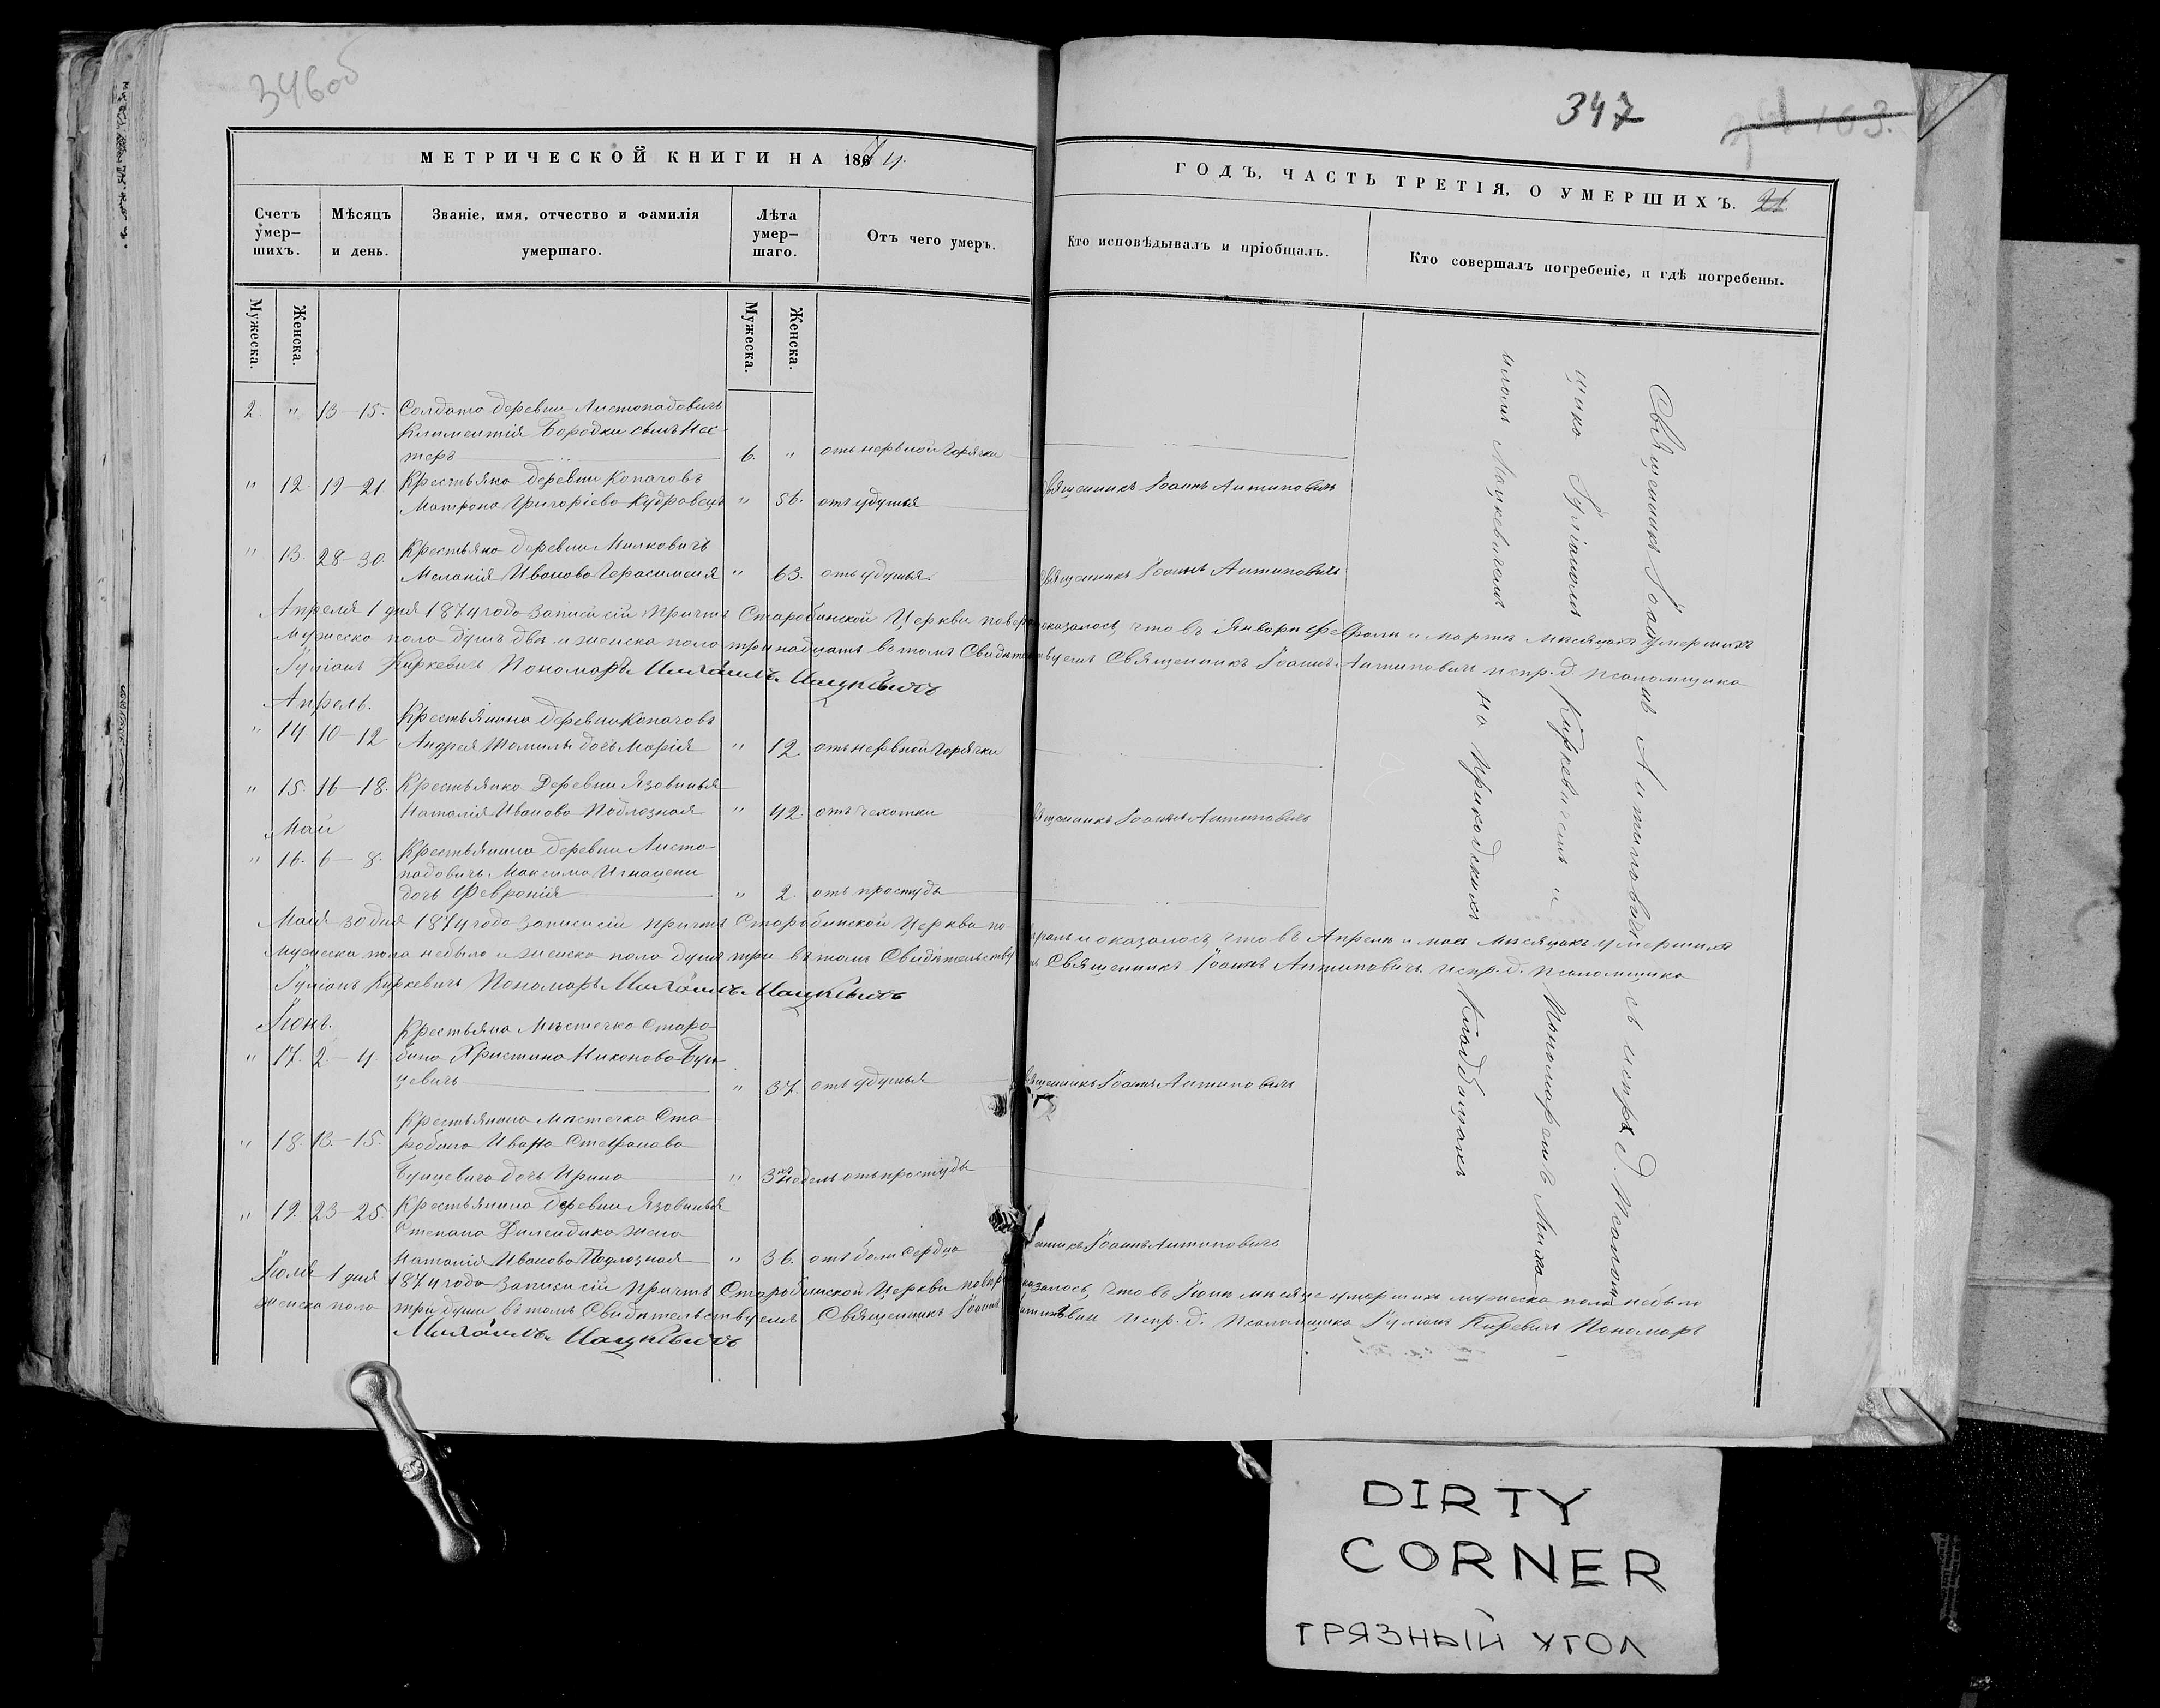 346об
МЕТРИЧЕСКОЙ КНИГИ НА 1874.
Счетъ умер-шихъ.
Мѣсяцъ и день.
Званіе, имя, отчество и фамилія умершаго.
Лѣта умер-шаго.
Отъ чего умеръ.
Мужеска.
Женска.
Мужеска.
Женска.
2. " 13-15. Солдата деревни Листопадовичъ
Климентія Бородки сынъ Нес-
теръ 6. " отъ нервной горячки
" 12. 19-21. Крестьянка деревни Копачовъ
Матрона Григоріева Кудравецъ " 56. отъ удушья
" 13. 28-30. Крестьянка деревни Милковичъ
Меланія Иванова Герасименя " 63. отъ удушья
Апреля 1 дня 1874 года записи сіи причтъ Старобинской Церкви повер
Мужеска пола душъ два и женска пола тринадцать въ томъ Свидѣтель
Іуліанъ Киркевичъ Пономаръ Михаилъ Мацкевичъ
Апрель.
" 14 10-12 Крестьянина деревни Копачовъ
Андрея Шомилы дочь Марія " 12. отъ нервной горячки
" 15. 16-18. Крестьянка Деревни Язовинья
Наталія Иванова Подлозная " 42. отъ чехотки
Май
" 16. 6-8. Крестьянина деревни Листо-
падовичъ Максима Игнацени
дочь Февронія " 2. отъ простуды
Маія 30 дня 1874 года записи сіи причтъ Старобинской Церкви по-
мужеска пола небыло и женска пола душъ три въ томъ Свидѣтельству
Іуліанъ Киркевичъ Пономаръ Михаилъ Мацкевичъ
Іюнь.
" 17. 2.-4. Крестьянка Мѣстечка Старо-
бина Христина Никонова Бун-
цевичъ " 37. отъ удушья
" 18. 13.-15. Крестьянина Мѣстечка Ста
робина Ивана Стефанова
Бунцевича дочь Ирина " 3 недель отъ простуды
" 19. 23-25 Крестьянина деревни Язовинья
Степана Дилендика жена
Наталія Иванова Подлозная " 36. отъ боли сердца
Іюля 1 дня 1874 года записи сіи причтъ Старобинской Церкви повер
женска пола три души въ томъ Свидѣтельствуемъ Священникъ Іоаннъ
Михаилъ Мацкевичъ
347
163.
ГОДЪ, ЧАСТЬ ТРЕТІЯ, О УМЕРШИХЪ. 21.
Кто исповѣдывалъ и пріобщалъ.
Кто совершалъ погребеніе, и гдѣ погребены.
Священникъ Іоаннъ Антиповичъ
Священникъ Іоаннъ Антиповичъ
оказалось, что въ Январи Феврали и Мартѣ Мѣсяцахъ умершихъ
ствуемъ Священникъ Іоаннъ Антиповичъ испр. д. псаломщика
Священникъ Іоаннъ Антиповичъ
ерялъ и оказалось, что въ Апрели и маѣ Мѣсяцахъ умершихъ
мъ Священникъ Іоаннъ Антиповичъ испр. д. Псаломщика
Священникъ Іоаннъ Антиповичъ
енникъ Іоаннъ Антиповичъ
оказалось, что въ Іюнѣ мѣсяце умершихъ мужеска пола небыло
Антиповичъ испр. д. Псаломщика Іуліанъ Киркевичъ Пономаръ
Священникъ Іоаннъ Антиповичъ съ испр. д. Псалом
щика Іуліаномъ Киркевичемъ и Пономаремъ Миха
иломъ Мацкевичемъ на приходскихъ Кладбищахъ
DIRTY
CORNER
ГРЯЗНЫЙ УГОЛ